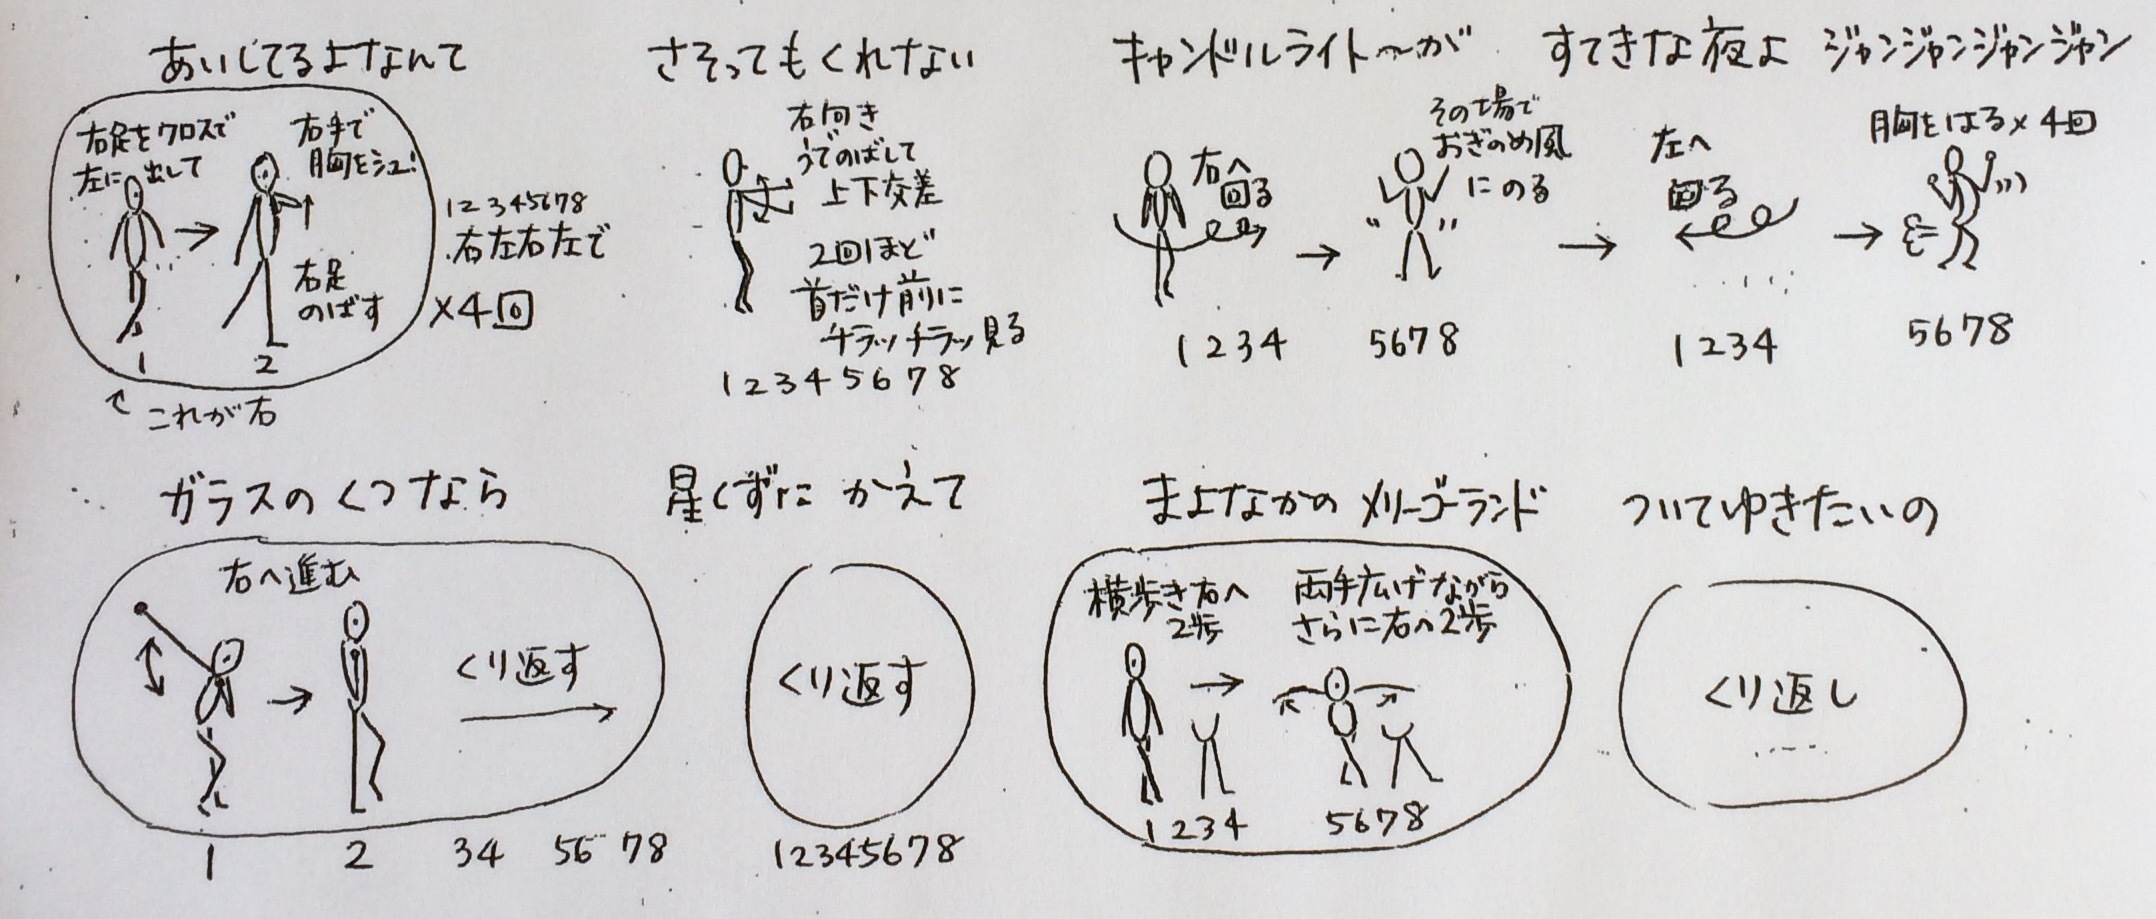 あいしてるよなんて
さそってもくれない
キャンドルライト〜が
すてきな夜よ ジャンジャンジャンジャン
右足をクロスで
左に出して
右手で
胸をシュ!
右足
のばす
1
2
これが右
12345678
右左右左で
×4回
右向き
うでのばして
上下交差
2回ほど
首だけ前に
チラッチラッ見る
12345678
右へ
回る
1234
その場で
おぎのめ風
にのる
5678
左へ
回る
1234
胸をはる×4回
5678
ガラスのくつなら
星くずに かえて
まよなかの メリーゴーランド
ついてゆきたいの
右へ進む
くり返す
1
2
34
56
78
くり返す
12345678
横歩き右へ
2歩
1234
両手広げながら
さらに右へ2歩
5678
くり返し